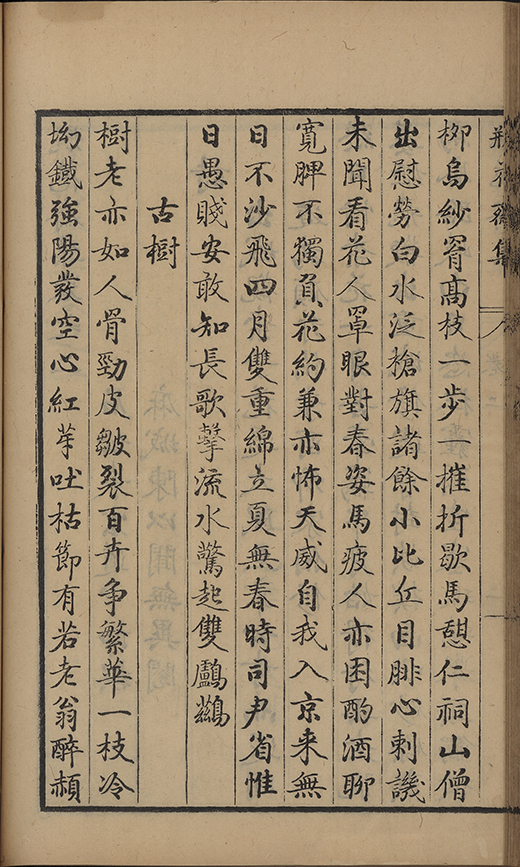 瓶花齋集
卷二
柳烏紗罥高枝一步一摧折歇馬憩仁祠山僧
出慰勞白水泛槍旗諸餘小比丘目腓心刺譏
未聞看花人罩眼對春姿馬疲人亦困酌酒聊
寬脾不獨負花約兼亦怖天威自我入京来無
日不沙飛四月雙重綿立夏無春時司尹省惟
日愚賤安敢知長歌擊流水驚起雙鸕鷀
古樹
樹老亦如人骨勁皮皺裂百卉争繁華一枝冷
坳鐵強陽發空心紅芽吐枯節有若老翁醉頳